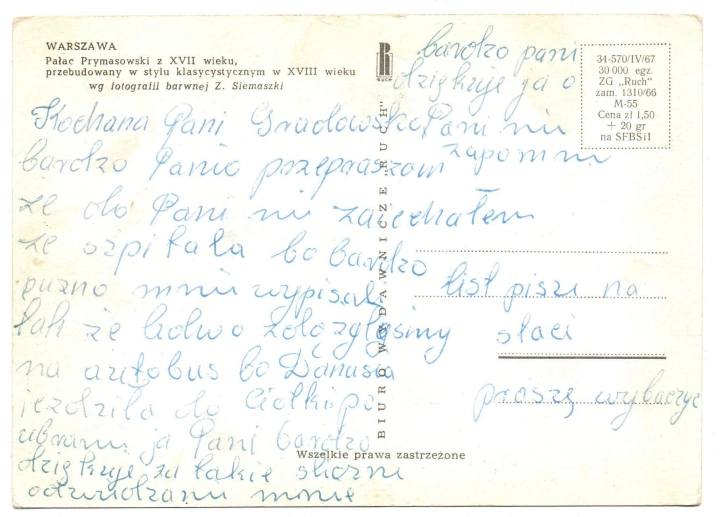 WARSZAWA
Pałac Prymasowski z XVII wieku,
przebudowany w stylu klasycystycznym w XVIII wieku
wg fotografii barwnej Z. Siemaszki
Kochana Pani Gradowska
bardzo Panio przepraszam
że do Pani ni zaiechałem
ze szpitala bo bardzo
puzno mnie wypisali
tak że ledwo
na autobus bo Danusia
jezdziła do Ciotki po
ubrani ja Pani bardzo
dziękuje za takie
odwidzanu mnie
bardzo pani
dziękuje ja o
Pani ni
zapomni
list pisze na
staci
proszę wybaczyc
34-570/IV/67
30 000 egz.
ZG „Ruch"
zam. 1310/66
M-55
Cena zł 1,50
+ 20 gr
na SFBSiI
RUCH
BIURO WYDAWNICZE „RUCH"
Wszelkie prawa zastrzeżone